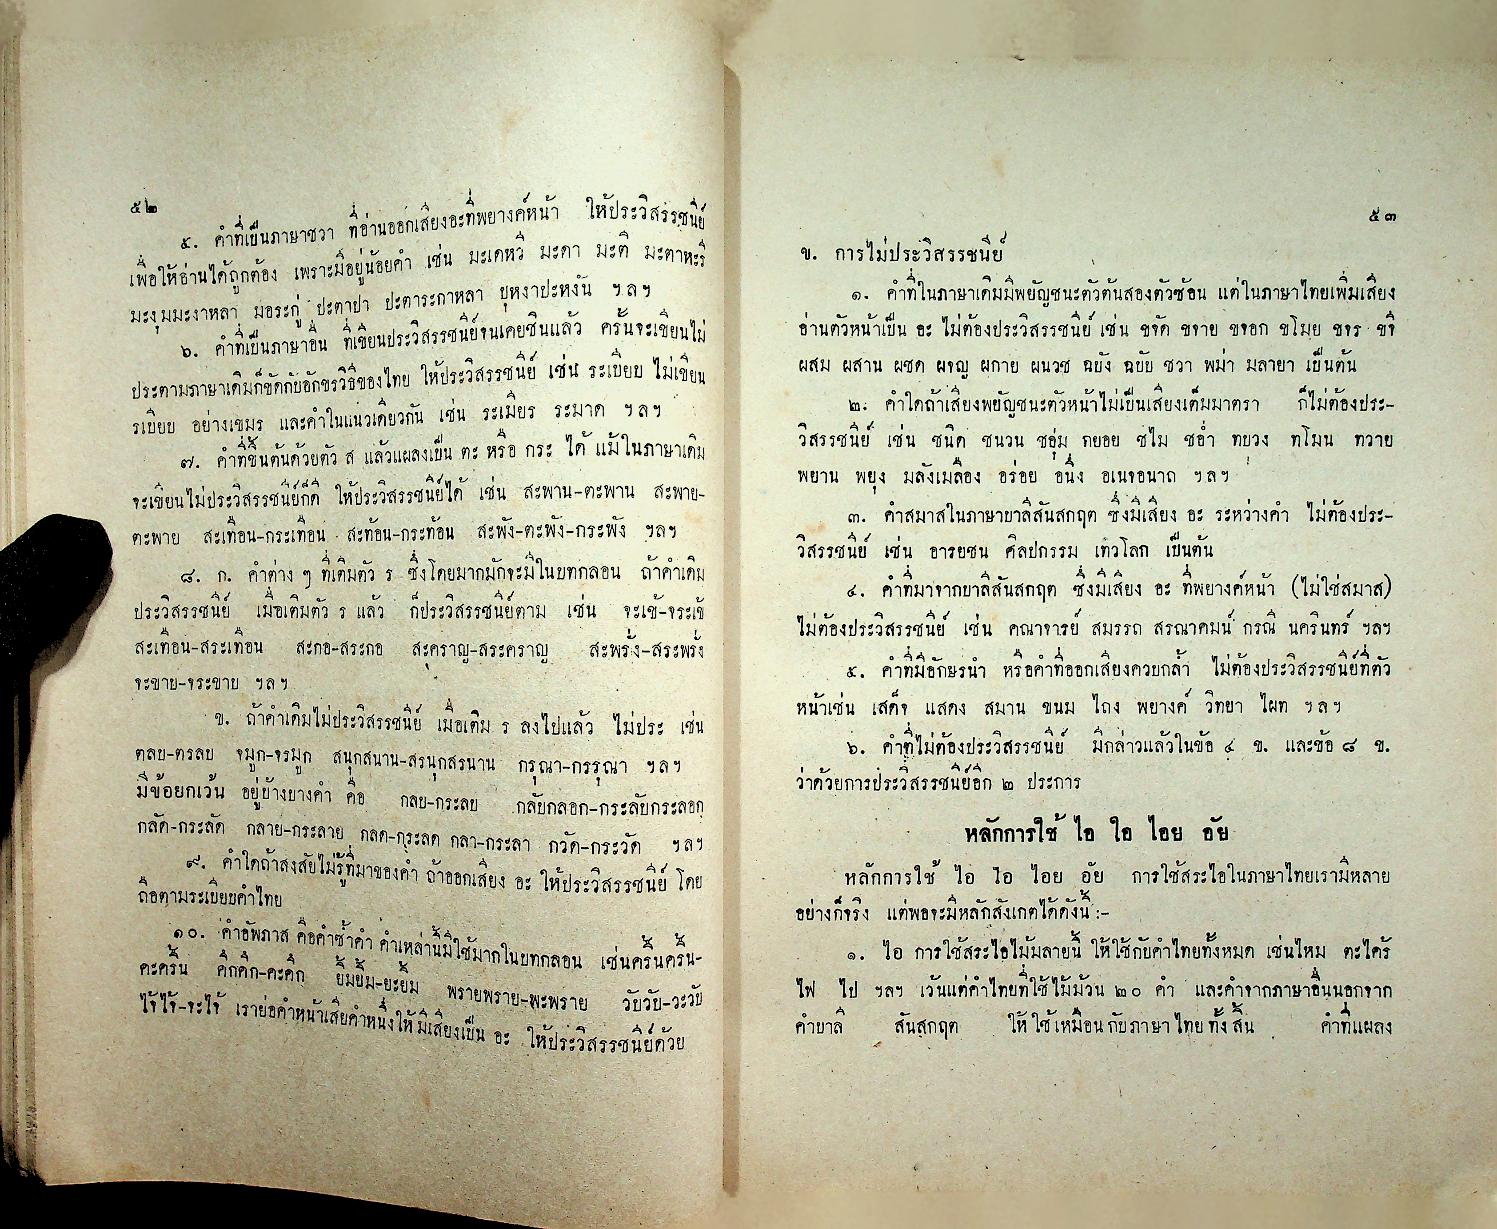 ๕๒
๕. คำที่เป็นภาษาชวา ที่อ่านออกเสียงอะที่พยางค์หน้า ให้ประวิสรรชนีย์
เพื่อให้อ่านได้ถูกต้อง เพราะมีอยู่น้อยคำ เช่น มะเดหวี มะดา มะตี มะตาหะรี
มะงุมมะงาหลา มอระกู่ ปะตาปา ปะตาระกาหลา บุหงาปะหงัน ฯลฯ
๖. คำที่เป็นภาษาอื่น ที่เขียนประวิสรรชนีย์จนเคยชินแล้ว ครั้นจะเขียนไม่
ประตามภาษาเดิมก็ขัดกับอักขรวิธีของไทย ให้ประวิสรรชนีย์ เช่น ระเบียบ ไม่เขียน
รเบียบ อย่างเขมร และคำในแนวเดียวกัน เช่น ระเมียร ระมาด ฯลฯ
๗. คำที่ขึ้นต้นด้วยตัว ส แล้วแผลงเป็น ตะ หรือ กระ ได้ แม้ในภาษาเดิม
จะเขียนไม่ประวิสรรชนีย์ก็ดี ให้ประวิสรรชนีย์ได้ เช่น สะพาน-ตะพาน สะพาย-
ตะพาย สะเทือน-กระเทือน สะท้อน-กระท้อน สะพัง-ตะพัง-กระพัง ฯลฯ
๘. ก. คำต่าง ๆ ที่เติมตัว ร ซึ่งโดยมากมักจะมีในบทกลอน ถ้าคำเดิม
ประวิสรรชนีย์ เมื่อเติมตัว ร แล้ว ก็ประวิสรรชนีย์ตาม เช่น จะเข้-จระเข้
สะเทือน-สระเทือน สะกอ-สระกอ สะคราญ-สระคราญ สะพรั่ง-สระพรั่ง
จะขาย-จระขาย ฯลฯ
ข. ถ้าคำเดิมไม่ประวิสรรชนีย์ เมื่อเติม ร ลงไปแล้ว ไม่ประ เช่น
ตลบ-ตรลบ จมูก-จรมูก สนุกสนาน-สรนุกสรนาน กรุณา-กรรุณา ฯลฯ
มีข้อยกเว้น อยู่บ้างบางคำ คือ กลบ-กระลบ กลับกลอก-กระลับกระลอก
กลัด-กระลัด กลาย-กระลาย กลด-กระลด กลา-กระลา กวัด-กระวัด ฯลฯ
๙. คำใดถ้าสงสัยไม่รู้ที่มาของคำ ถ้าออกเสียง อะ ให้ประวิสรรชนีย์ โดย
ถือตามระเบียบคำไทย
๑๐. คำอัพภาส คือคำซ้ำคำ คำเหล่านี้มีใช้มากในบทกลอน เช่นครื้นครื้น-
คะครื้น คึกคึก-คะคึก ยิ้มยิ้ม-ยะยิ้ม พรายพราย-พะพราย วับวับ-วะวับ
ไจ้ไจ้-จะไจ้ เราย่อคำหน้าเสียคำหนึ่งให้มีเสียงเป็น อะ ให้ประวิสรรชนีย์ด้วย
๕๓
ข. การไม่ประวิสรรชนีย์
๑. คำที่ในภาษาเดิมมีพยัญชนะตัวต้นสองตัวซ้อน แต่ในภาษาไทยเพิ่มเสียง
อ่านตัวหน้าเป็น อะ ไม่ต้องประวิสรรชนีย์ เช่น ขจัด ขจาย ขจอก ขโมย ขจร ขจี
ผสม ผสาน ผชด ผจญ ผกาย ผนวช ฉบัง ฉบับ ชวา พม่า มลายา เป็นต้น
๒. คำใดถ้าเสียงพยัญชนะตัวหน้าไม่เป็นเสียงเต็มมาตรา ก็ไม่ต้องประ-
วิสรรชนีย์ เช่น ชนิด ชนวน ชอุ่ม กยอย ชไม ชอ่ำ ทยวง ทโมน ทวาย
พยาน พยุง มลังเมลือง อร่อย อนึ่ง อเนจอนาถ ฯลฯ
๓. คำสมาสในภาษาบาลีสันสกฤต ซึ่งมีเสียง อะ ระหว่างคำ ไม่ต้องประ-
วิสรรชนีย์ เช่น อารยชน ศิลปกรรม เทวโลก เป็นต้น
๔. คำที่มาจากบาลีสันสกฤต ซึ่งมีเสียง อะ ที่พยางค์หน้า (ไม่ใช่สมาส)
ไม่ต้องประวิสรรชนีย์ เช่น คณาจารย์ สมรรถ สรณาคมน์ กรณี นครินทร์ ฯลฯ
๕. คำที่มีอักษรนำ หรือคำที่ออกเสียงควบกล้ำ ไม่ต้องประวิสรรชนีย์ที่ตัว
หน้าเช่น เสด็จ แสดง สมาน ขนม ไถง พยางค์ วิทยา ไผท ฯลฯ
๖. คำที่ไม่ต้องประวิสรรชนีย์ มีกล่าวแล้วในข้อ ๔ ข. และข้อ ๘ ข.
ว่าด้วยการประวิสรรชนีย์อีก ๒ ประการ
หลักการใช้ ไอ ใอ ไอย อัย
หลักการใช้ ไอ ใอ ไอย อัย การใช้สระไอในภาษาไทยเรามีหลาย
อย่างก็จริง แต่พอจะมีหลักสังเกตได้ดังนี้ :-
๑. ไอ การใช้สระไอไม้มลายนี้ ให้ใช้กับคำไทยทั้งหมด เช่นไหม ตะไคร้
ไฟ ไป ฯลฯ เว้นแต่คำไทยที่ใช้ไม้ม้วน ๒๐ คำ และคำจากภาษาอื่นนอกจาก
คำบาลี สันสกฤต ให้ใช้เหมือนกับภาษาไทยทั้งสิ้น คำที่แผลง